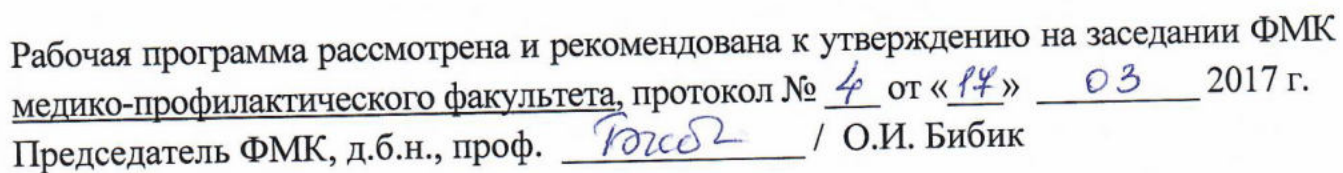 Рабочая программа рассмотрена и рекомендована к утверждению на заседании ФМК
медико-профилактического факультета, протокол № 4 от «17» 03 2017 г.
Председатель ФМК, д.б.н., проф. / О.И. Бибик